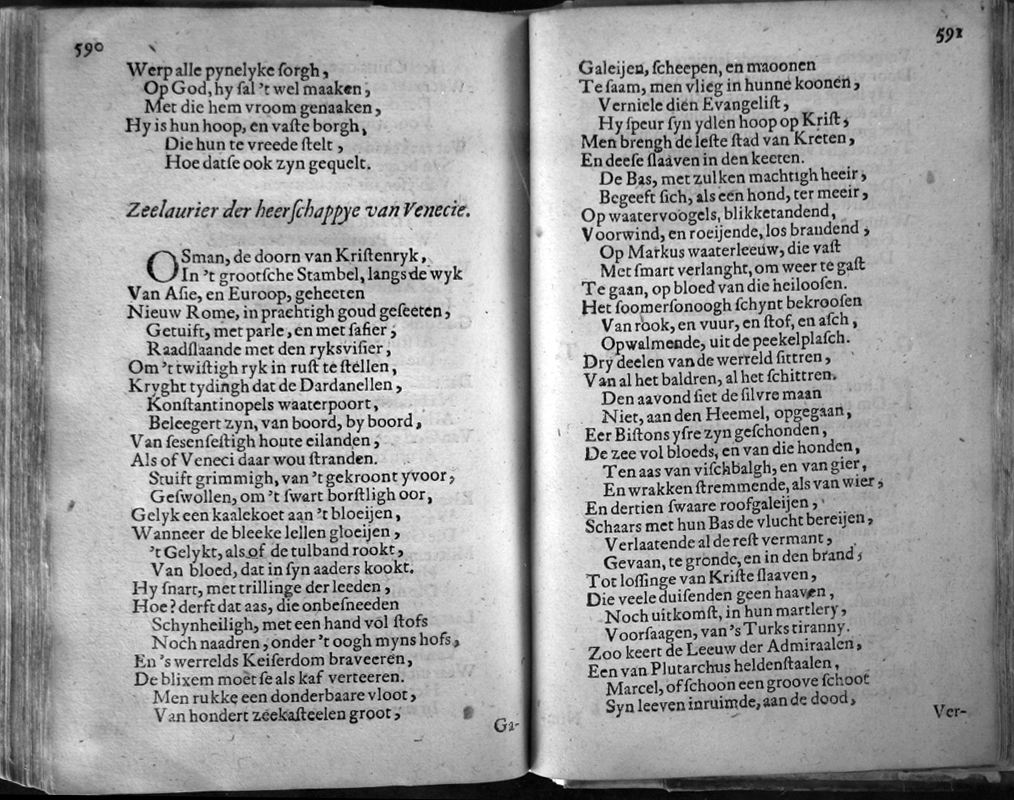 590
Werp alle pynelyke ſorgh,
Op God, hy ſal 't wel maaken,
Met die hem vroom genaaken,
Hy is hun hoop, en vaſte borgh,
Die hun te vreede ſtelt,
Hoe datſe ook zyn gequelt.
Zeelaurier der heerſchappye van Venecie.
OSman, de doorn van Kriſtenryk,
In 't grootſche Stambel, langs de wyk
Van Aſie, en Euroop, geheeten
Nieuw Rome, in prachtigh goud geſeeten,
Getuift, met parle, en met ſafier,
Raadſlaande met den ryksviſier,
Om 't twiſtigh ryk in ruſt te ſtellen,
Kryght tydingh dat de Dardanellen,
Konſtantinopels waaterpoort,
Beleegert zyn, van boord, by boord,
Van ſesenſeſtigh houte eilanden,
Als of Veneci daar wou ſtranden.
Stuift grimmigh, van 't gekroont yvoor,
Geſwollen, om 't ſwart borſtligh oor,
Gelyk een kaalekoet aan 't bloeijen,
Wanneer de bleeke lellen gloeijen,
't Gelykt, als of de tulband rookt,
Van bloed, dat in ſyn aaders kookt.
Hy ſnart, met trillinge der leeden,
Hoe? derft dat aas, die onbeſneeden
Schynheiligh, met een hand vol ſtofs
Noch naadren, onder 't oogh myns hofs,
En 's werrelds Keiſerdom braveeren,
De blixem moet ſe als kaf verteeren.
Men rukke een donderbaare vloot,
Van hondert zeekaſteelen groot,
Ga-
591
Galeijen, ſcheepen, en maoonen
Te ſaam, men vlieg in hunne koonen,
Verniele dien Evangeliſt,
Hy ſpeur ſyn ydlen hoop op Kriſt,
Men brengh de leſte ſtad van Kreten,
En deeſe ſlaaven in den keeten.
De Bas, met zulken machtigh heeir,
Begeeft ſich, als een hond, ter meeir,
Op waatervoogels, blikketandend,
Voorwind, en roeijende, los brandend,
Op Markus waaterleeuw, die vaſt
Met ſmart verlanght, om weer te gaſt
Te gaan, op bloed van die heilooſen.
Het ſoomerſonoogh ſchynt bekrooſen
Van rook, en vuur, en ſtof, en aſch,
Opwalmende, uit de peekelplaſch.
Dry deelen van de werreld ſittren,
Van al het baldren, al het ſchittren.
Den aavond ſiet de ſilvre maan
Niet, aan den Heemel, opgegaan,
Eer Biſtons yſre zyn geſchonden,
De zee vol bloeds, en van die honden,
Ten aas van viſchbalgh, en van gier,
En wrakken ſtremmende, als van wier,
En dertien ſwaare roofgaleijen,
Schaars met hun Bas de vlucht bereijen,
Verlaatende al de reſt vermant,
Gevaan, te gronde, en in den brand,
Tot loſſinge van Kriſte ſlaaven,
Die veele duiſenden geen haaven,
Noch uitkomſt, in hun martlery,
Voorſaagen, van 's Turks tiranny.
Zoo keert de Leeuw der Admiraalen,
Een van Plutarchus heldenſtaalen,
Marcel, of ſchoon een groove ſchoot
Syn leeven inruimde, aan de dood,
Ver-